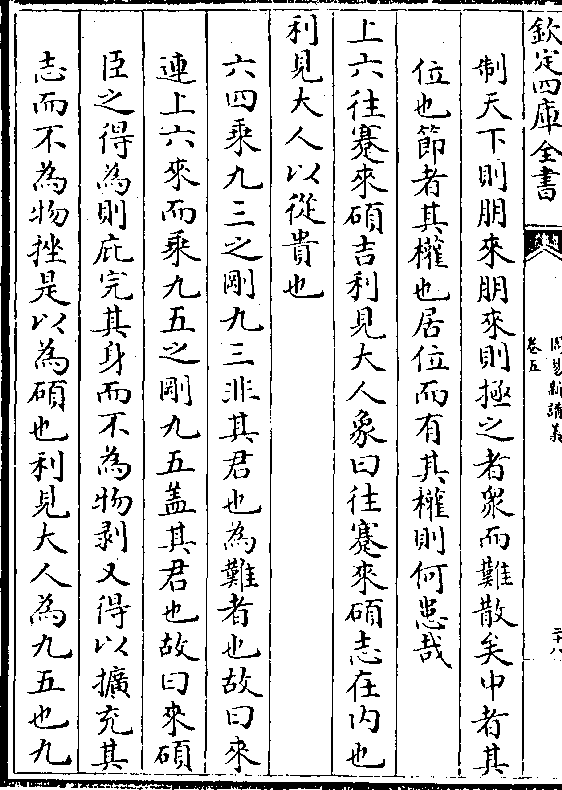 欽定四庫全書
周易新講義
卷五
二十八
制天下則朋來朋來則拯之者衆而難散矣中者其
位也節者其權也居位而有其權則何患哉
上六往蹇來碩吉利見大人象曰往蹇來碩志在内也
利見大人以從貴也
六四乘九三之剛九三非其君也為難者也故曰來
連上六來而乘九五之剛九五蓋其君也故曰來碩
臣之得為則庇完其身而不為物剥又得以擴充其
志而不為物挫是以為碩也利見大人為九五也九